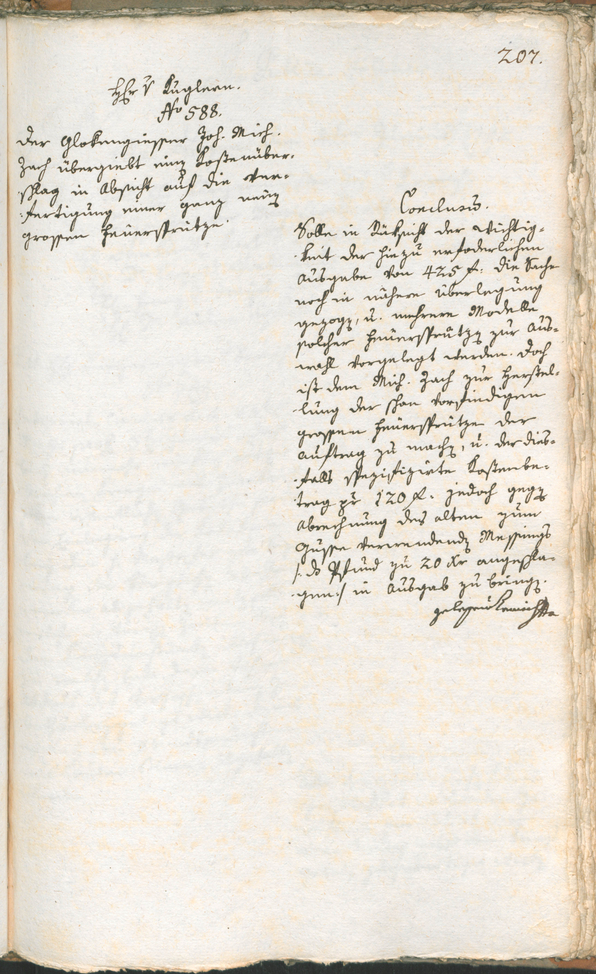 207.
H: v Kuglern.
No 588.
Der Glokengiesser Joh. Mich.
Zach übergiebt einen Kostenüber-
schlag in Absicht auf die Ver-
fertigung einer ganz neuen
grossen Feuersprütze.
Conclusum.
Solle in Rüksicht der Wichtig-
keit der hiezu erforderlichen
Ausgabe von 425 f. die Sache
noch in nähere Überlegung
gezogen, u. mehrere Modelle
solcher Feuersprützen zur Aus-
wahl vorgelegt werden. Doch
ist dem Mich. Zach zur Herstel-
lung der schon vorfindigen
grossen Feuersprütze der
Auftrag zu machen, u. der dies-
falls spezifizirte Kostenbe-
trag pr 120 f. jedoch gegen
Abrechnung des alten zum
Gusse verwendenden Messings
/: das Pfund zu 20 Kr angeschla-
gen :/ in Ausgab zu bringen.
gelesen